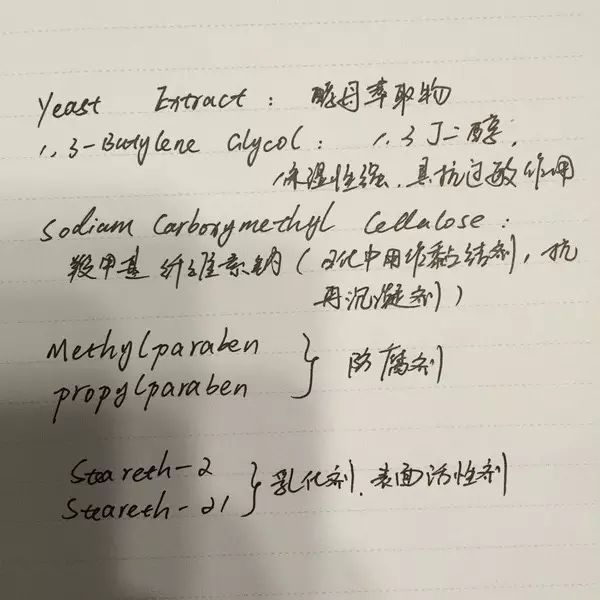 Yeast Extract: 酵母萃取物
1,3-Butylene Glycol: 1,3丁二醇,
保湿性强、具抗过敏作用
Sodium Carboxymethyl Cellulose:
羧甲基纤维素钠(日化中用作黏结剂,抗
再沉凝剂)
Methylparaben
propylparaben } 防腐剂
Steareth-2
Steareth-21 } 乳化剂、表面活性剂